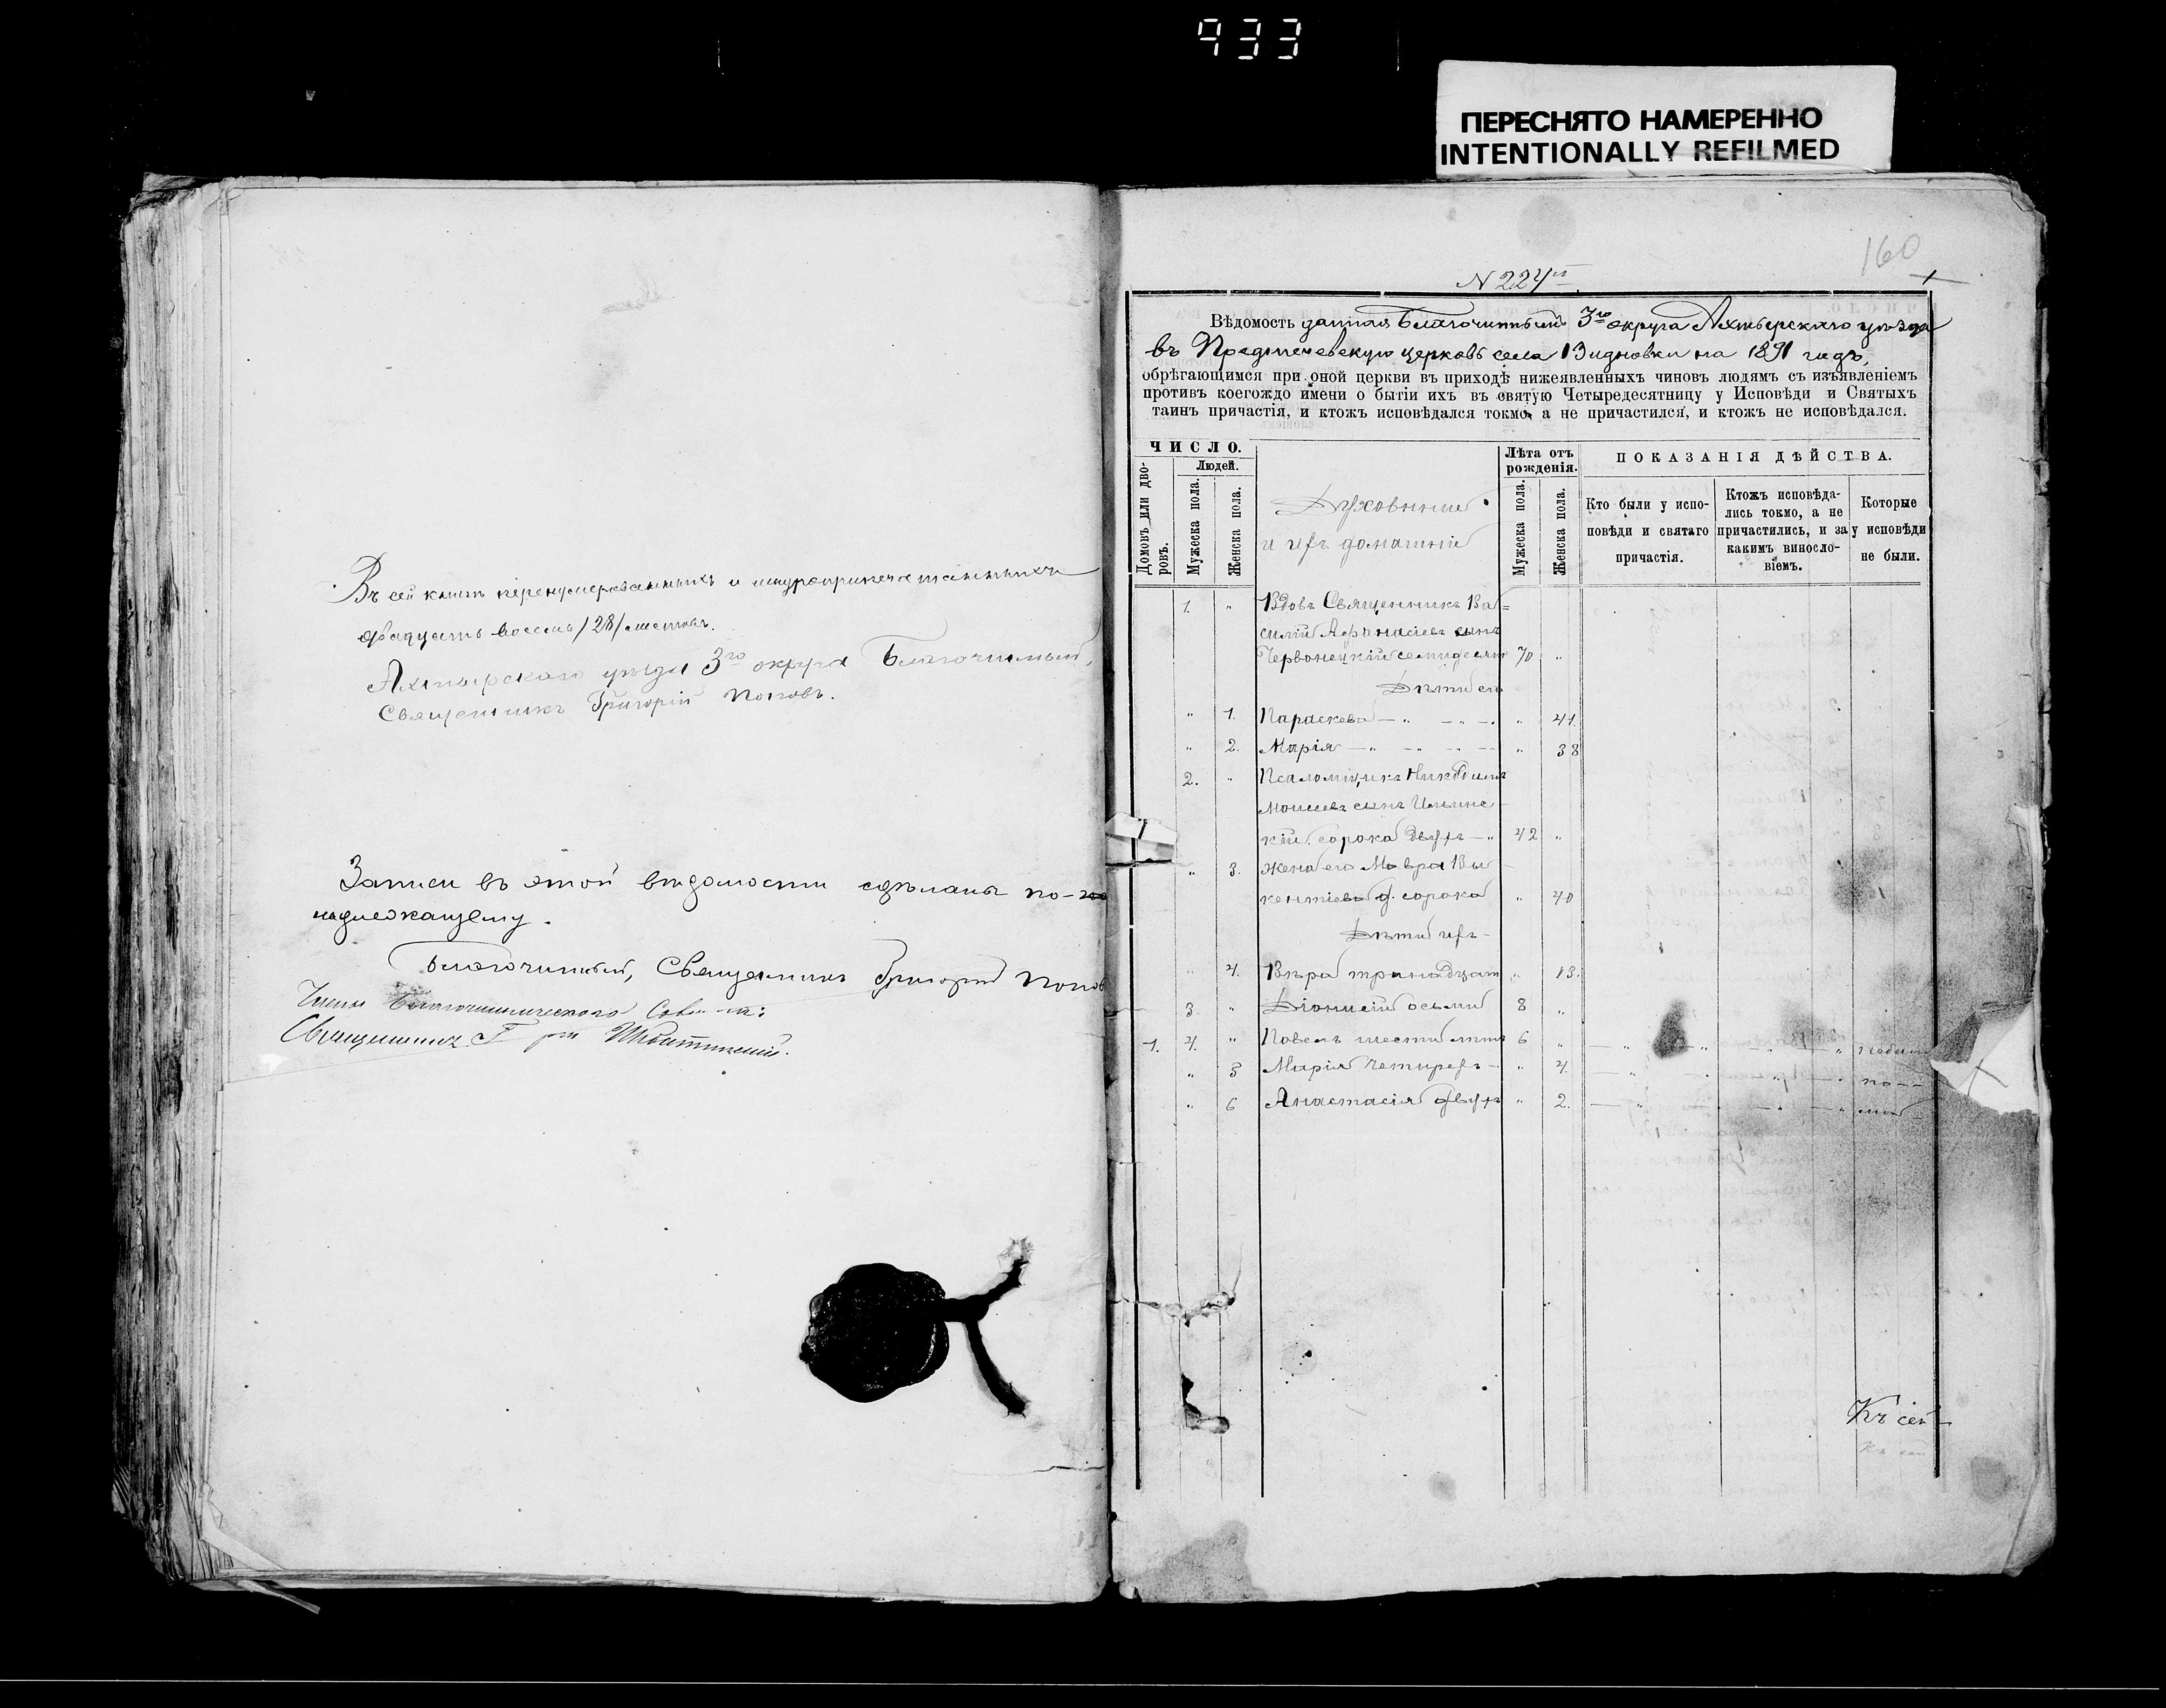 933
ПЕРЕСНЯТО НАМЕРЕННО
INTENTIONALLY REFILMED
Въ сей книгѣ перенумерованныхъ и шнуроприпечатанныхъ
двадцать восемь /28/ листовъ.
Ахтырскаго уѣзда 3го округа Благочинный,
Священникъ Григорій Поповъ.
Записи въ этой вѣдомости сдѣланы по-
надлежащему.
Благочинный, Священникъ Григорій Поповъ
Члены Благочинническаго Совѣта:
Священникъ
160
N 224й
1
Вѣдомость данная Благочиннымъ 3го округа Ахтырскаго уѣзда
въ Предтечевскую церковь села на 1891 годъ,
обрѣтающимся при оной церкви въ приходѣ нижеявленныхъ чиновъ людямъ съ изъявленіемъ
противъ коегождо имени о бытіи ихъ въ святую Четыредесятницу у Исповѣди и Святыхъ
таинъ причастія, и ктожъ исповѣдался токмо, а не причастился, и ктожъ не исповѣдался.
ЧИСЛО.
Домовъ или дворовъ.
Людей.
Мужеска пола.
Женска пола.
Духовные
и ихъ домашніе
Лѣта отъ рожденія.
Мужеска пола.
Женска пола.
ПОКАЗАНІЯ ДѢЙСТВА.
Кто были у исповѣди и святаго причастія.
Ктожъ исповѣдались токмо, а не причастились, и за какимъ винословіемъ.
Которые у исповѣди не были.
1. " Вдовъ Священникъ Ва=
силій Аѳанасіевъ сынъ
Червонецкій семидесяти 70 "
Дѣти его
" 1. Параскева — " — " — " 41
" 2. Марія — " — " — " 38
2. " Псаломщикъ Никодимъ
Моисеевъ сынъ Ильинс-
кій сорока двухъ — " 42 "
" 3. Жена его Мавра Ви-
кентіева д. сорока " 40
Дѣти ихъ-
" 4. Вѣра тринадцати " 13.
3. " Діонисій осьми 8 "
1. 4. " Павелъ шести лѣтъ 6 "
" 5 Марія четырехъ- " 4.
по--
" 6 Анастасія двухъ " 2.
Къ сей
Къ сей